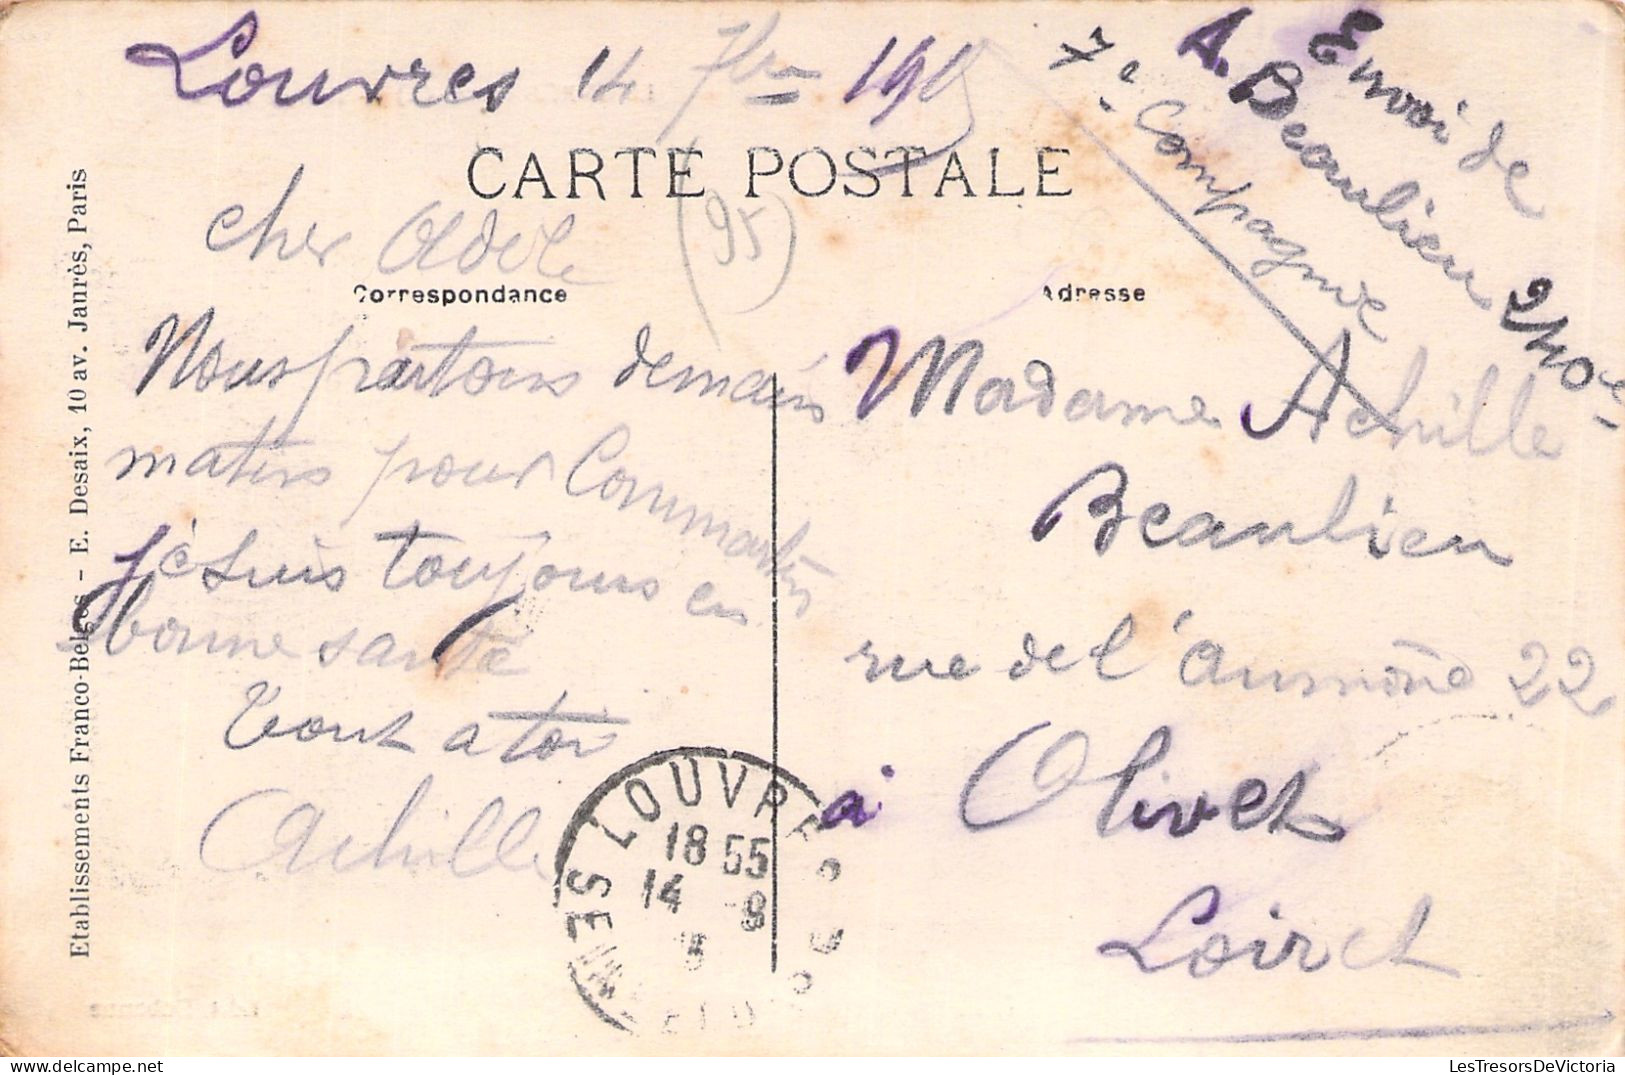 Louvres 14 7bre 1915
CARTE POSTALE
(95)
Envoi de
A. Beaulieu
7e Compagnie
240e
cher Adele
Correspondance
Adresse
Nous partons demain
matin pour
je suis toujours en
bonne santé
tout a toi
Achille
Madame Achille
Beaulieu
rue de l'aumône 22
à Olivet
Loiret
LOUVRES
18 55
14 8
SEINE
Etablissements Franco-Belges - E. Desaix, 10 av. Jaurès, Paris
LesTresorsDeVictoria